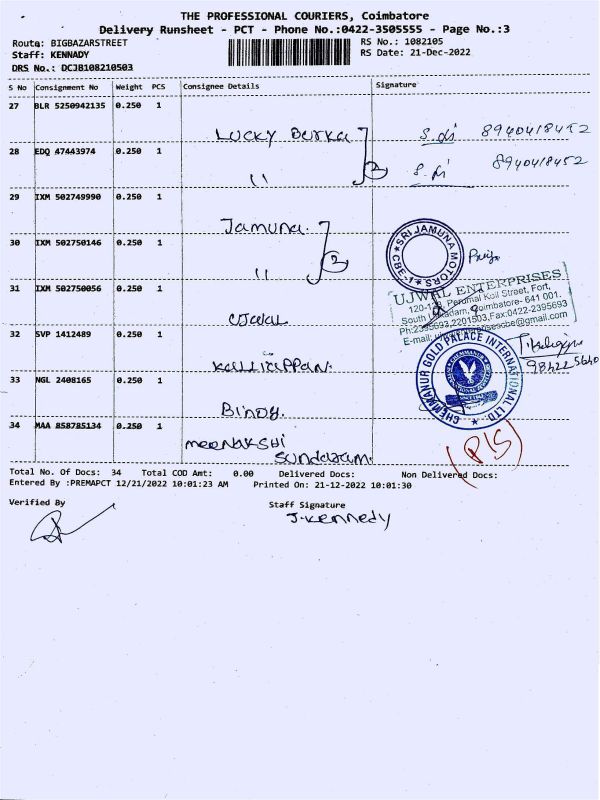 THE PROFESSIONAL COURIERS, Coimbatore
Delivery Runsheet - PCT - Phone No.:0422-3505555 - Page No.:3
Route: BIGBAZARSTREET
RS No.: 1082105
Staff: KENNADY
RS Date: 21-Dec-2022
DRS No.: DCJB108210503
S No Consignment No Weight PCS Consignee Details Signature
27 BLR 5250942135 0.250 1
Lucky Burka 8940418452
28 EDQ 47443974 0.250 1
" 8940418452
29 IXM 502749990 0.250 1
Jamuna.
SRI JAMUNA MOTORS
CBE-1
30 IXM 502750146 0.250 1
" Priya
31 IXM 502750056 0.250 1
UJWAL ENTERPRISES
Perumal Koil Street, Fort,
Coimbatore- 641 001.
Ph:2395693,2201503,Fax:0422-2395693
Ujwal
32 SVP 1412489 0.250 1
Kalliappan.
CHEMMANUR GOLD PALACE INTERNATIONAL LTD
33 NGL 2408165 0.250 1
Binoy.
34 MAA 858785134 0.250 1
Meenakshi
Sundaram.
(P/S)
Total No. Of Docs: 34 Total COD Amt: 0.00 Delivered Docs: Non Delivered Docs:
Entered By :PREMAPCT 12/21/2022 10:01:23 AM Printed On: 21-12-2022 10:01:30
Verified By Staff Signature
J. Kennedy